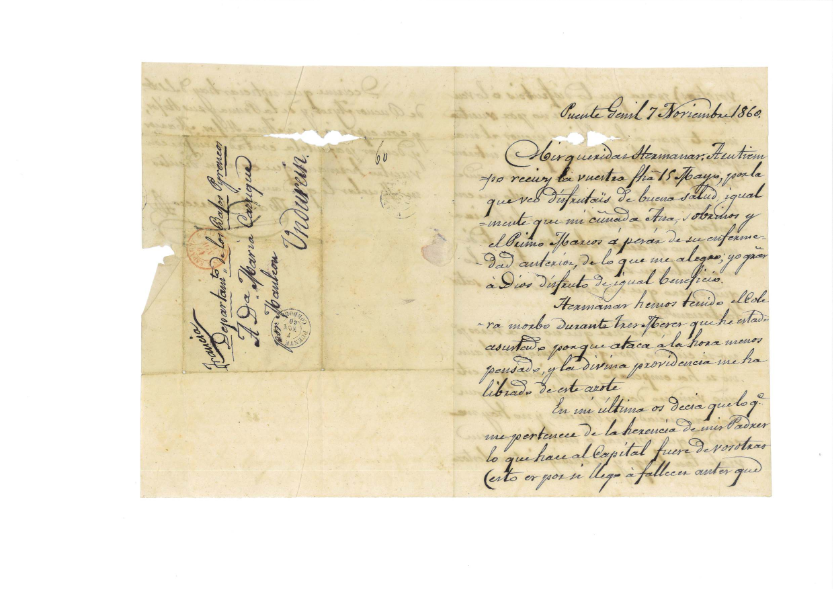 Francia
Departam.to de los Bajos Pyreneos
A Da. Maria Enrique
por Mauleon
Undurein
Puente Genil 7 Noviembre 1860.
Mis queridas Hermanas: A su tiem-
-po recivi la vuestra fha 15 Mayo, por la
que veo disfrutais de buena salud, igual
-mente que mi cuñada Ana, Sobrinos y
el Primo Marcos á pesar de su enferme-
dad anterior, de lo que me alegro; yo gras
á Dios disfruto de igual beneficio.
Hermanas hemos tenido el Cole-
ra morbo durante tres Meses que he estado
asustado porque ataca a la hora menos
pensado, y la divina providencia me ha
librado de este azote
En mi última os decia que lo q.e
me pertenece de la herencia de mis Padres
lo que hace al Capital fuere de vosotras
Esto es por si llego à fallecer antes que